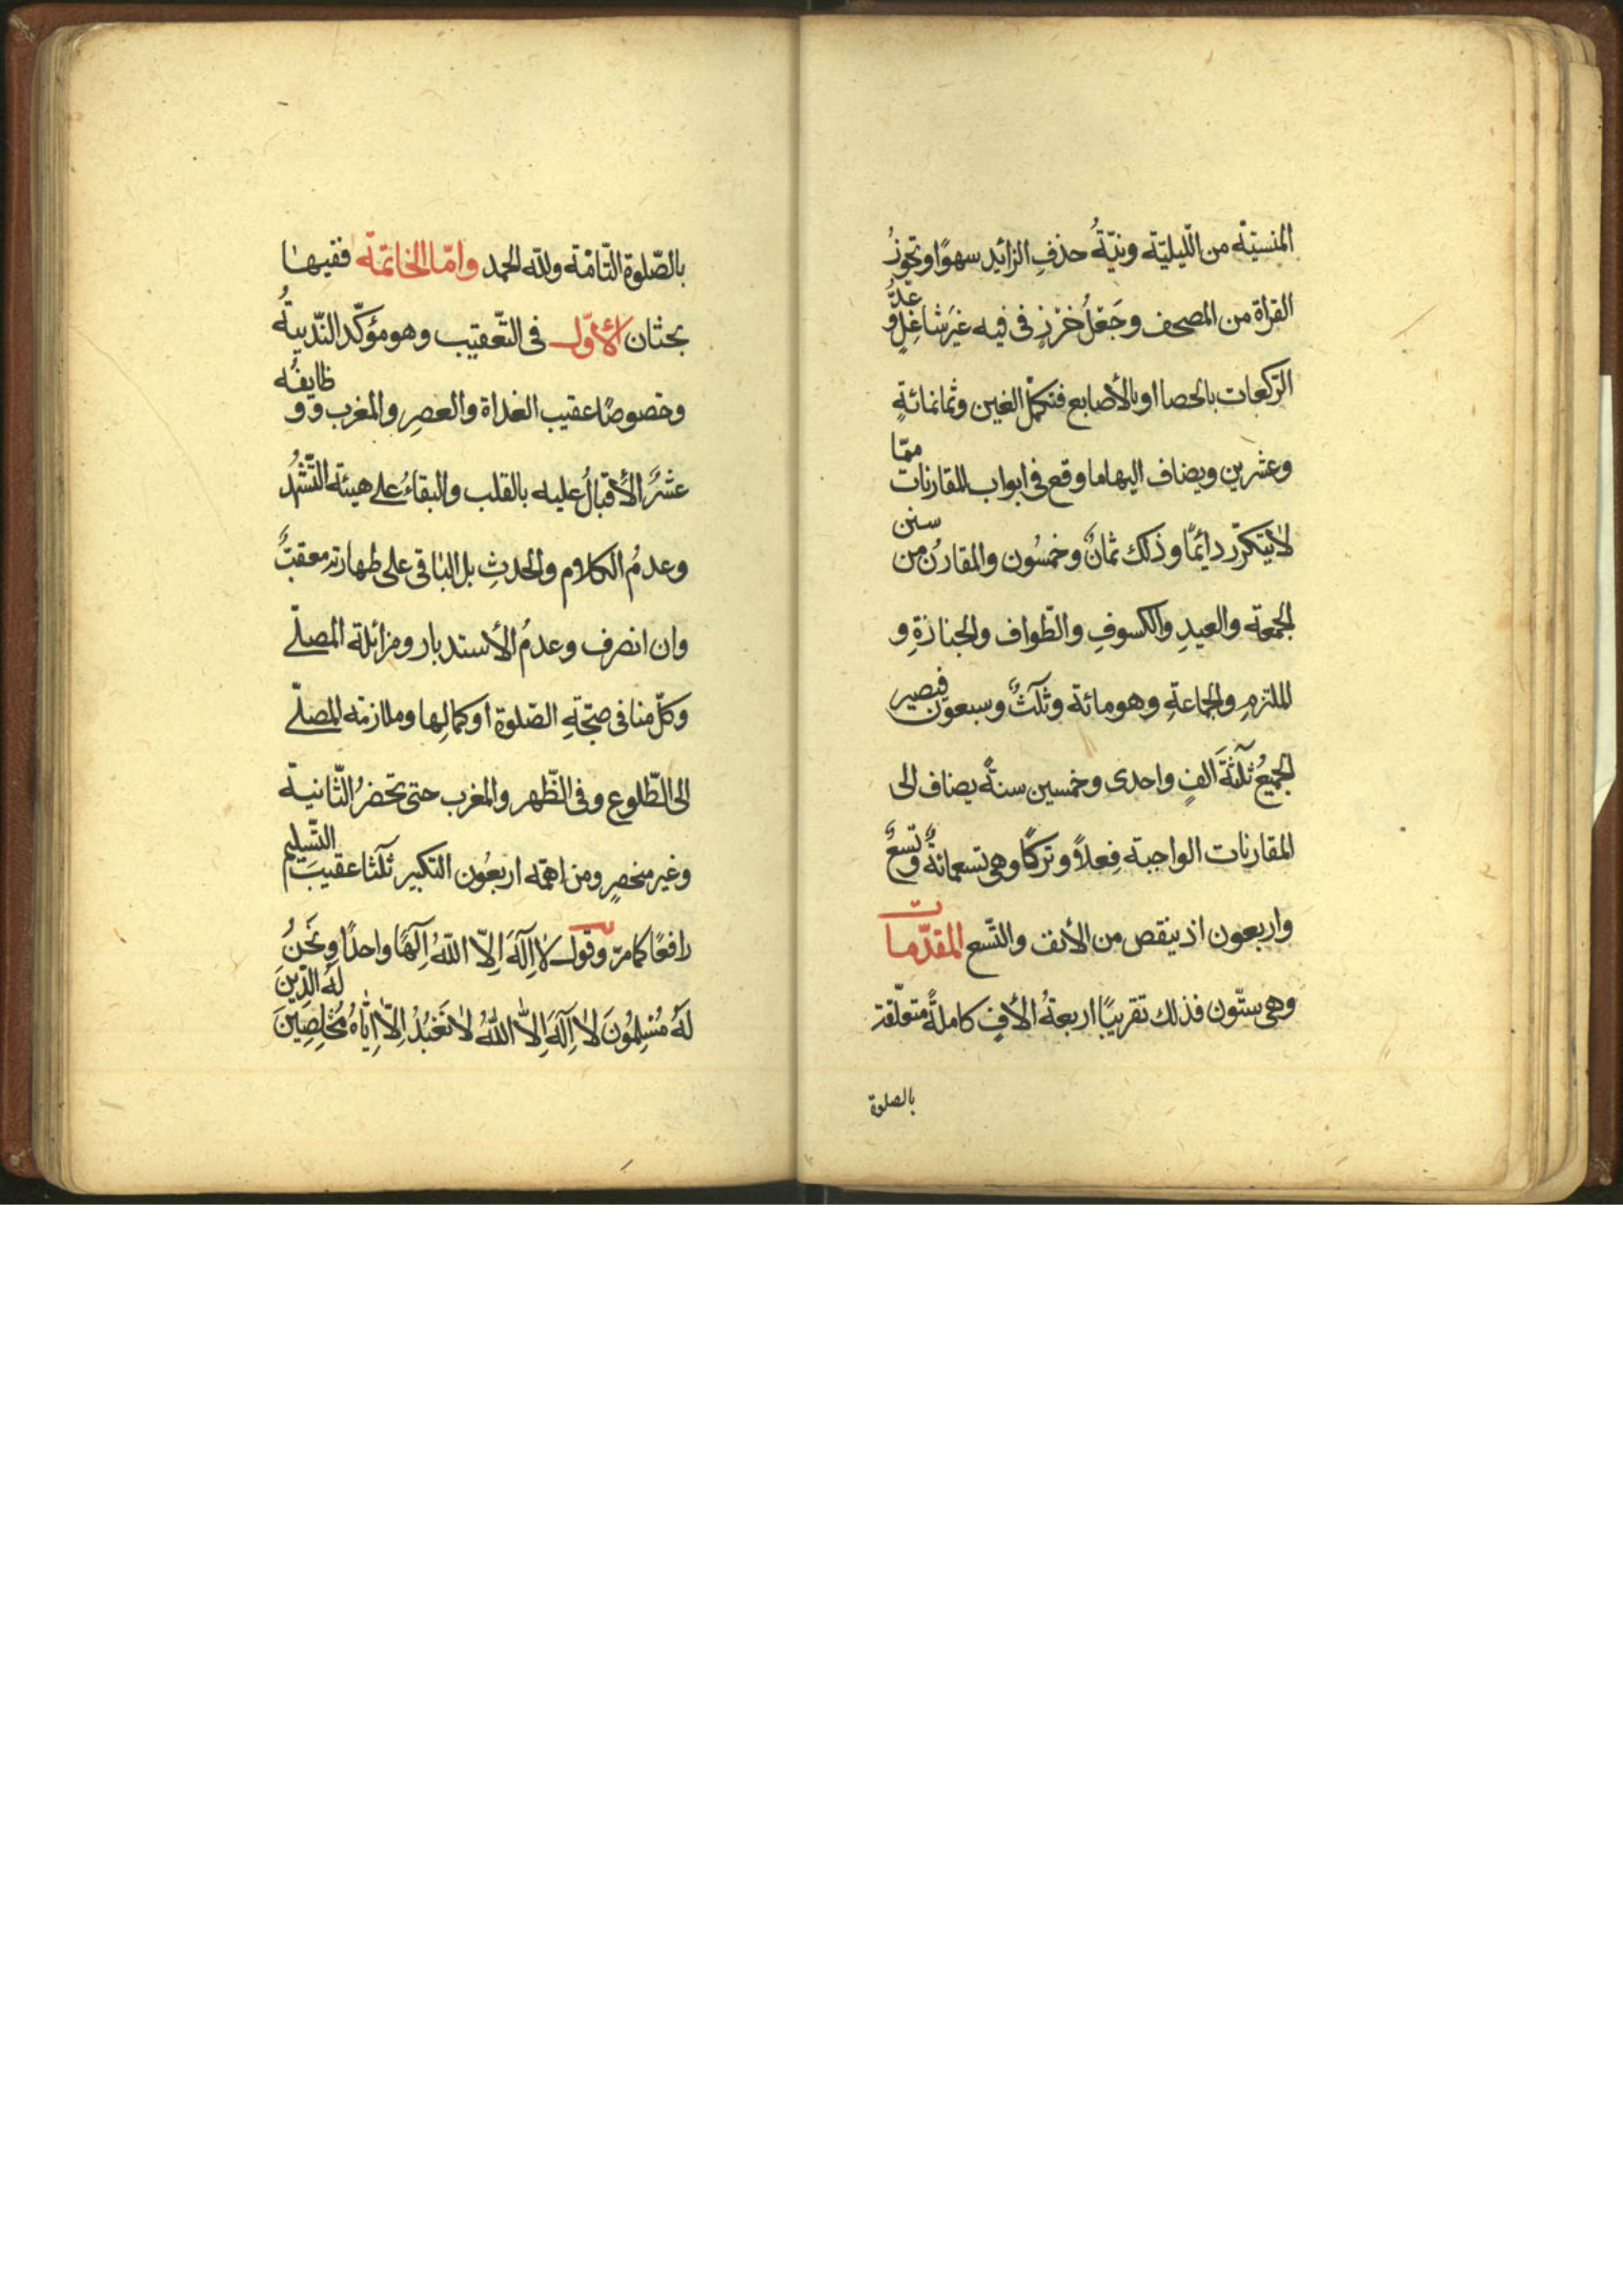 المنسيّة من الّليليّة ونيّةُ حذفِ الزائِد سهوًا وتجوزُ
القراة من المصحف وجَعْلُ خرزٍ فى فيه غيرَ شاغِلٍ وعدُّ
الرّكعات بالحصا او بالأصابع فتكمل الفين وثمانمائةٍ
وعشرين ويضاف اليها ما وقع فى ابواب المقارنات ممّا
لا يتكرّر دائمًا وذلك ثمانٌ وخمسُون والمقارنُ من سنن
الجمعة والعيدِ والكسوفِ والطّواف والجنازةِ و
الملتزمِ والجماعةِ وهو مائة وثلثٌ وسبعون فيصير
الجميعُ ثلثةَ الفٍ واحدى وخمسين سنةً يضاف الى
المقارنات الواجبة فِعلاً وتركًا وهى تسعمائةٌ وتسعٌ
واربعون اذ ينقص من الألف والتّسع المقدّمات
وهى ستّون فذلك تقريبًا اربعةُ الأفٍ كاملةً متعلّقة
بالصلوة
بالصّلوة التّامّة ولله الحمد وامّا الخاتمة ففيها
بحثان الأوّل فى التّعقيب وهو مؤكّد النّدبيةُ
وخصوصًا عقيب الغداة والعصرِ والمغرب و وظايفُه
عشرٌ الأقبالُ عليه بالقلب والبقاءُ على هيئة التّشهّد
وعدمُ الكلام والحدثِ بل الباقى على طهارته معقبٌ
وان انصرف وعدمُ الأستدبار ومزائلة المصلّى
وكلّ مناف صحّةِ الصّلوة او كمالِها وملازمة المصلّى
الى الطّلوع وفى الظّهر والمغرب حتى تحضرُ الثّانية
وغير منحصرٍ ومن اهمّه اربعُون التكبير ثلثا عقيبَ التّسليم
رافعًا كما مرّ وقول لا اِلٓهَ اِلاّ اللهُ اِلٓهًا واحدًا ونَحْنُ
لَهُ مُسْلِمُونَ لا اِلٓهَ اِلاّ اللهُ لا نَعْبُدُ اِلاّ اِيّاهُ مُخْلِصِينَ لَهُ الدّينَ